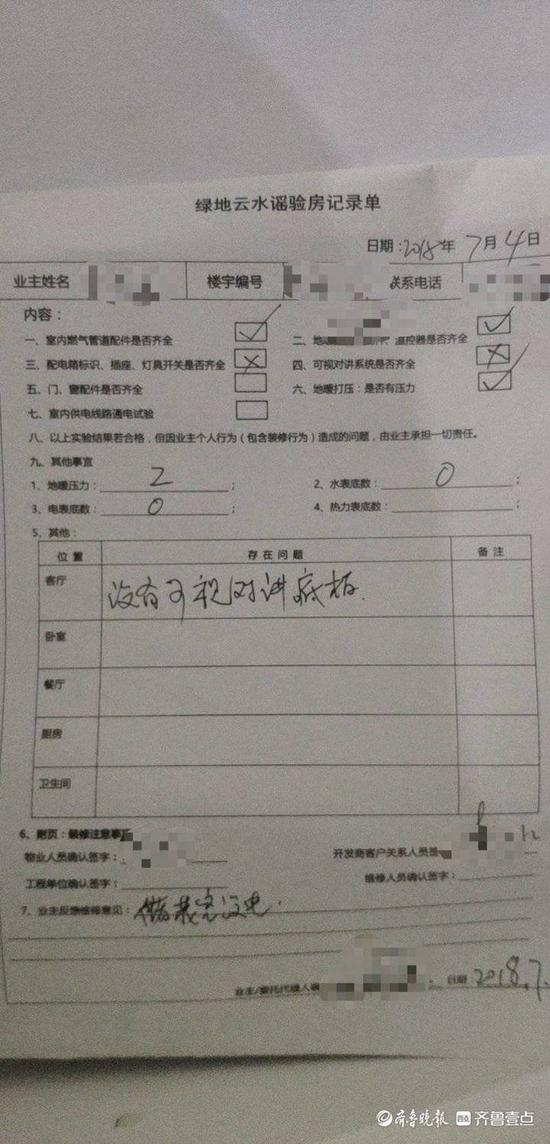 绿地云水谣验房记录单
日期：2018年 7月 4日
业主姓名 楼宇编号 联系电话
内容：
一、室内燃气管道配件是否齐全 二、地 温控器是否齐全
三、配电箱标识、插座、灯具开关是否齐全 四、可视对讲系统是否齐全
五、门、窗配件是否齐全 六、地暖打压：是否有压力
七、室内供电线路通电试验
八、以上实验结果若合格，但因业主个人行为（包含装修行为）造成的问题，由业主承担一切责任。
九、其他事宜
1、地暖压力：2； 2、水表底数：0；
3、电表底数：0； 4、热力表底数：；
5、其他：
位置 存在问题 备注
客厅 没有可视对讲底板.
卧室
餐厅
厨房
卫生间
6、附页：装修注意事
物业人员确认签字： 开发商客户关系人员签
工程单位确认签字： 维修人员确认签字：
7、业主反馈维修意见：
业主/委托代理人 日期：2018.7.
齐鲁晚报 齐鲁壹点